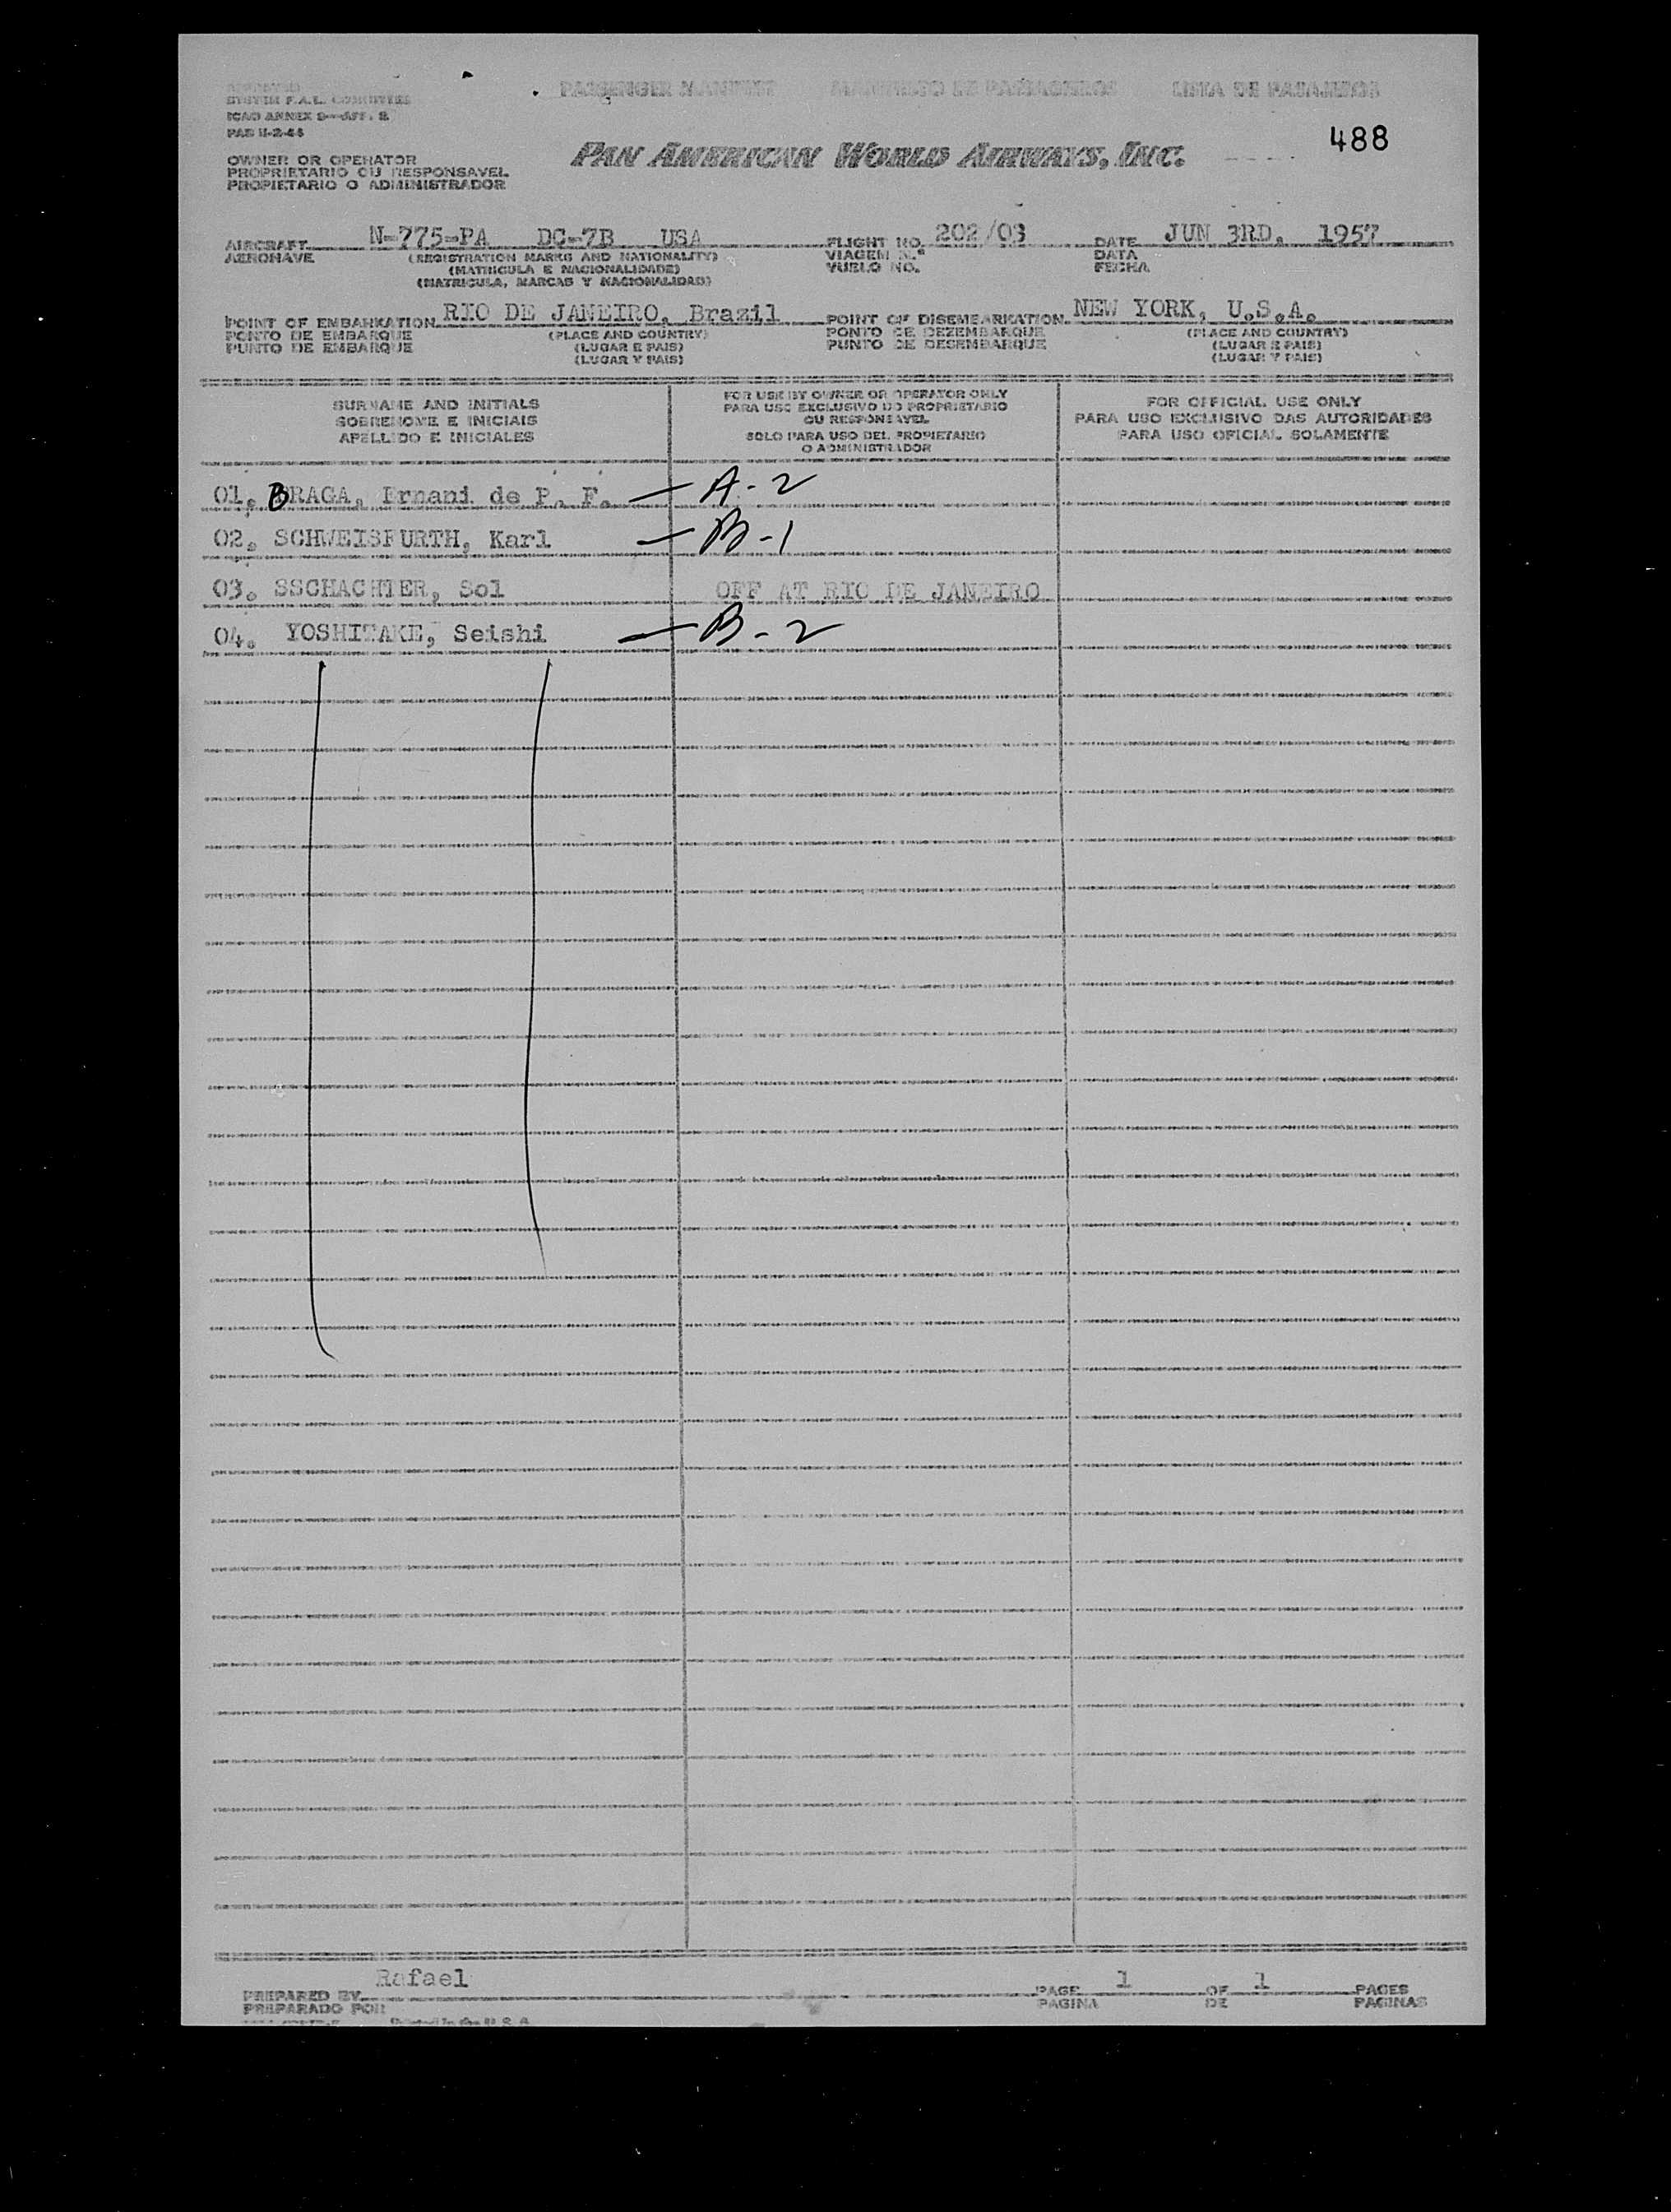 PASSENGER MANIFEST MANIFESTO DE PASSAGEIROS LISTA DE PASAJEROS
SYSTEM F.A.L. COMMITTEE
ICAO ANNEX 9—APP. 2
488
OWNER OR OPERATOR
PROPRIETARIO OU RESPONSAVEL
PROPIETARIO O ADMINISTRADOR
PAN AMERICAN WORLD AIRWAYS, INC.
AIRCRAFT N-775-PA DC-7B USA FLIGHT NO. 202/03 DATE JUN 3RD, 1957
AERONAVE (REGISTRATION MARKS AND NATIONALITY) VIAGEM N.º DATA
(MATRICULA E NACIONALIDADE) VUELO NO. FECHA
(MATRICULA, MARCAS Y NACIONALIDAD)
POINT OF EMBARKATION RIO DE JANEIRO, Brazil POINT OF DISEMBARKATION NEW YORK, U.S.A.
PONTO DE EMBARQUE (PLACE AND COUNTRY) PONTO DE DEZEMBARQUE (PLACE AND COUNTRY)
PUNTO DE EMBARQUE (LUGAR E PAIS) PUNTO DE DESEMBARQUE (LUGAR E PAIS)
(LUGAR Y PAIS) (LUGAR Y PAIS)
SURNAME AND INITIALS
SOBRENOME E INICIAIS
APELLIDO E INICIALES
FOR USE BY OWNER OR OPERATOR ONLY
PARA USO EXCLUSIVO DO PROPRIETARIO
OU RESPONSAVEL
SOLO PARA USO DEL PROPIETARIO
O ADMINISTRADOR
FOR OFFICIAL USE ONLY
PARA USO EXCLUSIVO DAS AUTORIDADES
PARA USO OFICIAL SOLAMENTE
01. BRAGA, Ernani de P. F. — A-2
02. SCHWEISFURTH, Karl — B-1
03. SSCHACHTER, Sol OFF AT RIO DE JANEIRO
04. YOSHITAKE, Seishi — B-2
Rafael
PREPARED BY PAGE 1 OF 1 PAGES
PREPARADO POR PAGINA DE PAGINAS
Printed in the U.S.A.